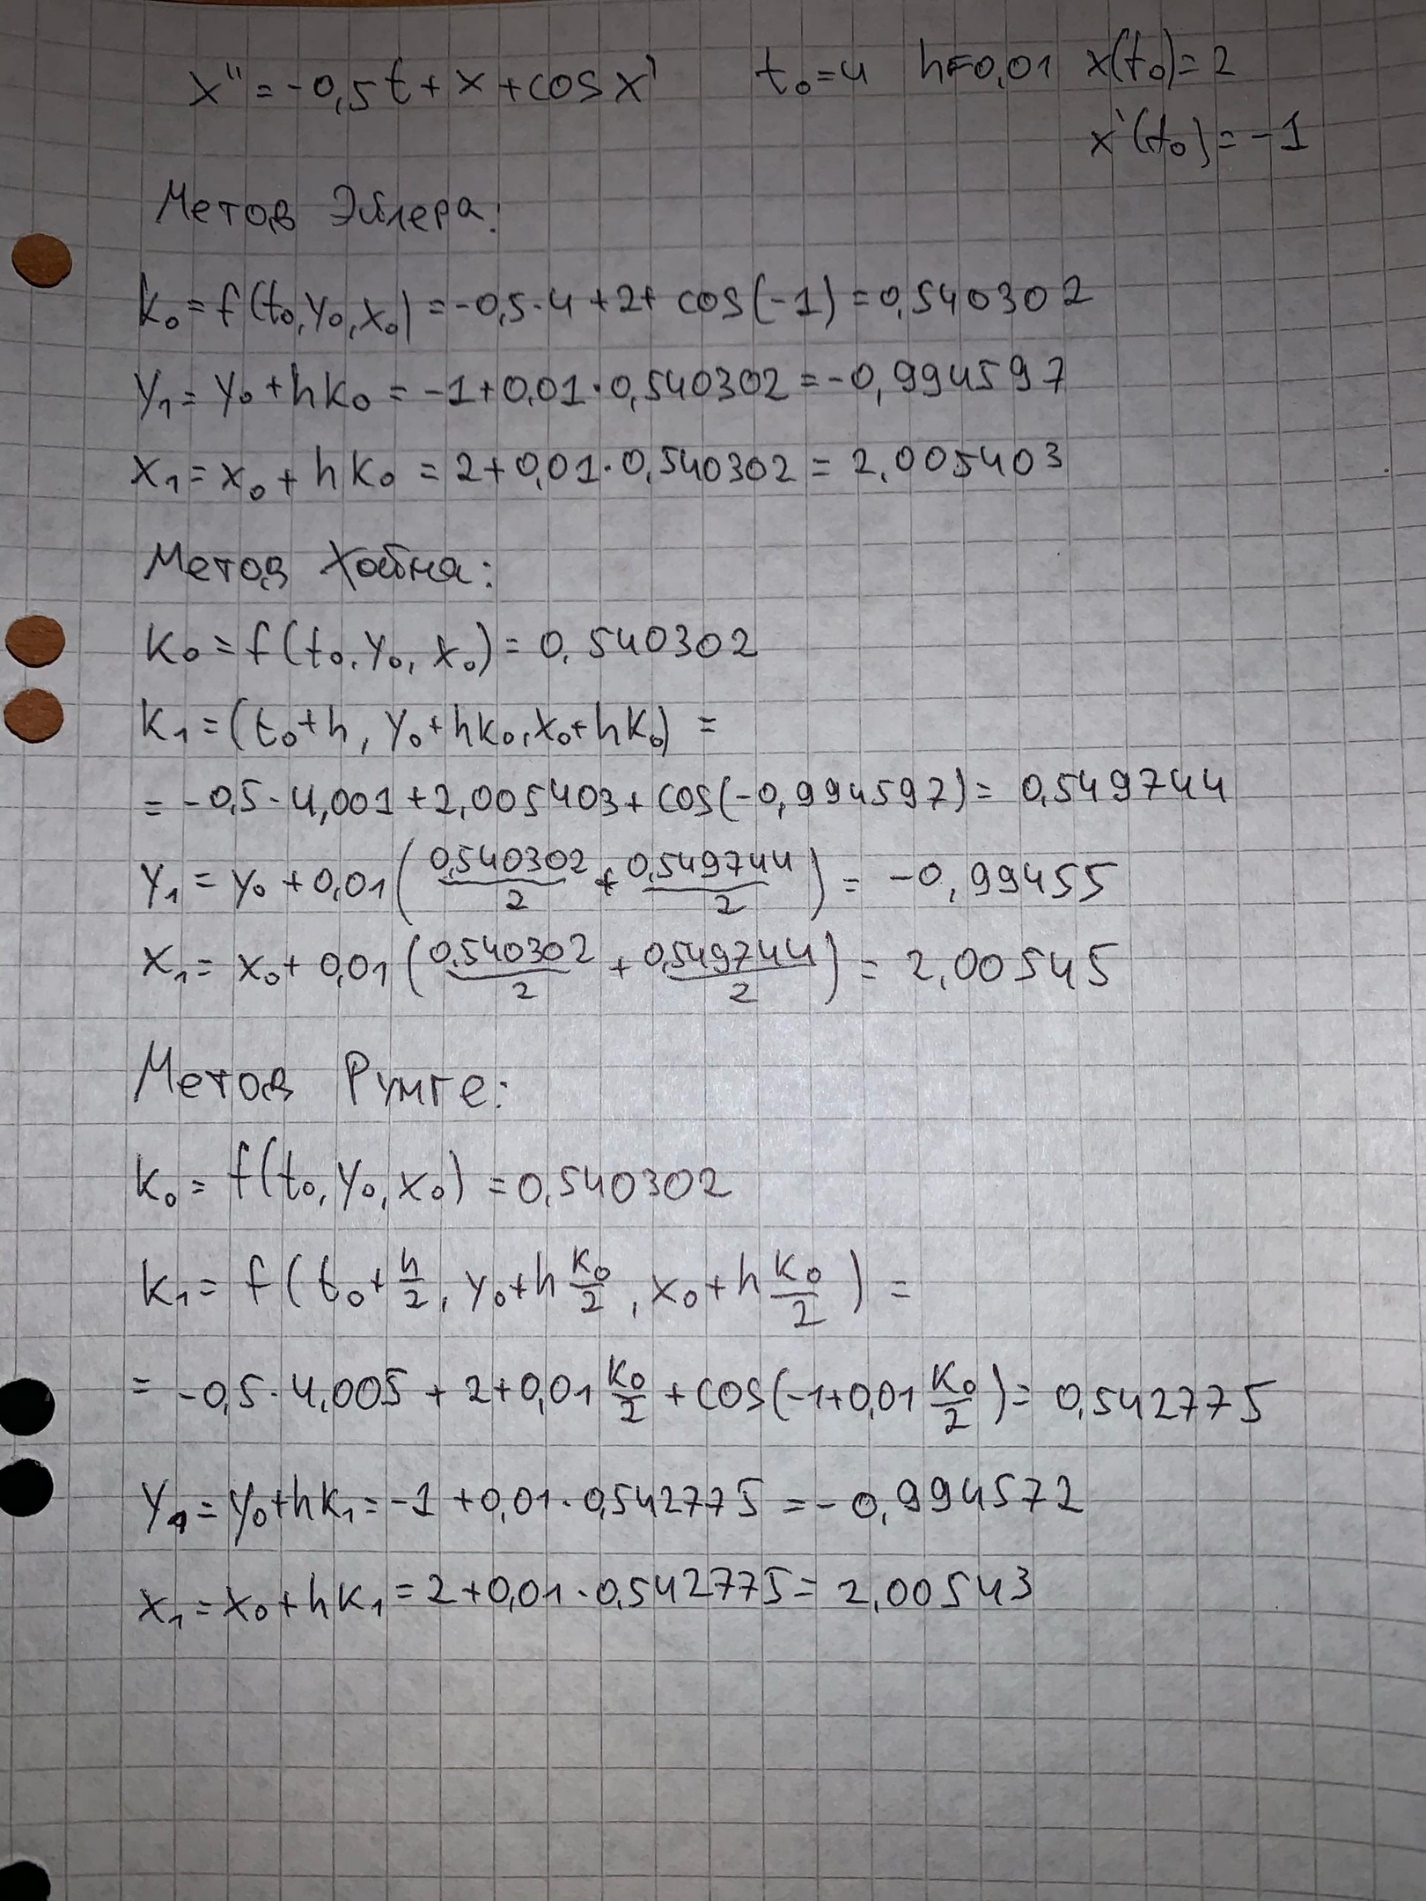 x'' = -0,5t + x + cosx' t₀=4 h=0,01 x(t₀)=2
x'(t₀)=-1
Метод Эйлера:
k₀=f(t₀,y₀,x₀)=-0,5·4+2+cos(-1)=0,540302
y₁=y₀+hk₀=-1+0,01·0,540302=-0,994597
x₁=x₀+hk₀=2+0,01·0,540302=2,005403
Метод Хойна:
k₀=f(t₀,y₀,x₀)=0,540302
k₁=(t₀+h, y₀+hk₀,x₀+hk₀)=
=-0,5·4,001+2,005403+cos(-0,994597)=0,549744
y₁=y₀+0,01(0,540302/2+0,549744/2)=-0,99455
x₁=x₀+0,01(0,540302/2+0,549744/2)=2,00545
Метод Рунге:
k₀=f(t₀,y₀,x₀)=0,540302
k₁=f(t₀+h/2, y₀+h k₀/2, x₀+h k₀/2)=
=-0,5·4,005+2+0,01 k₀/2+cos(-1+0,01 k₀/2)=0,542775
y₁=y₀+hk₁=-1+0,01·0,542775=-0,994572
x₁=x₀+hk₁=2+0,01·0,542775=2,00543